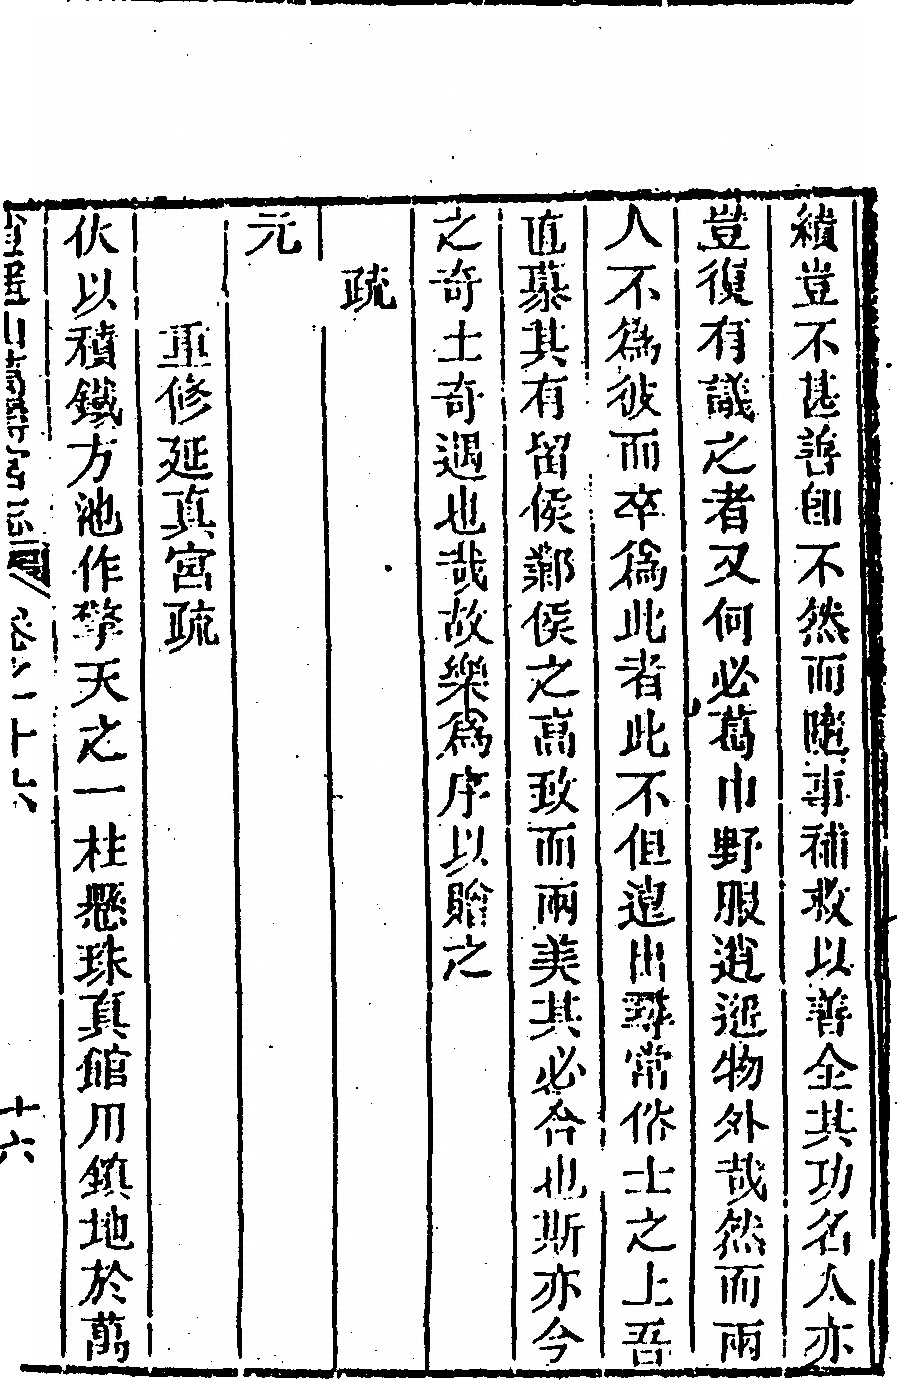 績豈不甚善卽不然而隨事補救以善全其功名人亦
豈復有議之者又何必葛巾野服逍遥物外哉然而兩
人不爲彼而卒爲此者此不但逺出尋常俗士之上吾
直慕其有留侯鄴侯之高致而兩美其必合也斯亦今
之竒士竒遇也哉故樂爲序以贈之
疏
元
重修延真宮疏
伏以積鐵方池作擎天之一柱懸珠真館用鎮地於萬
逍遥山萬壽宮志 卷之十六 十六